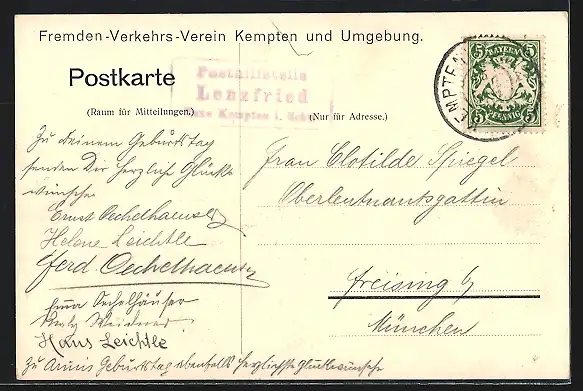 Fremden-Verkehrs-Verein Kempten und Umgebung.
Postkarte
(Raum für Mitteilungen.)
(Nur für Adresse.)
Posthilfstelle
Lenzfried
Taxe Kempten i. Schw.
KEMPTEN
5 BAYERN 5
5 PFENNIG 5
Zu deinem Geburtstag
senden Dir herzlich Glück-
wünsche
Ernst Oechelhaeuser
Helene Leichtle
Ferd. Oechelhaeuser
Oechelhäuser
Hans Leichtle
Zu Geburtstag ebenfalls herzlichste Glückwünsche
Frau Clotilde Spiegel
Oberleutnantsgattin
Freising b/
München